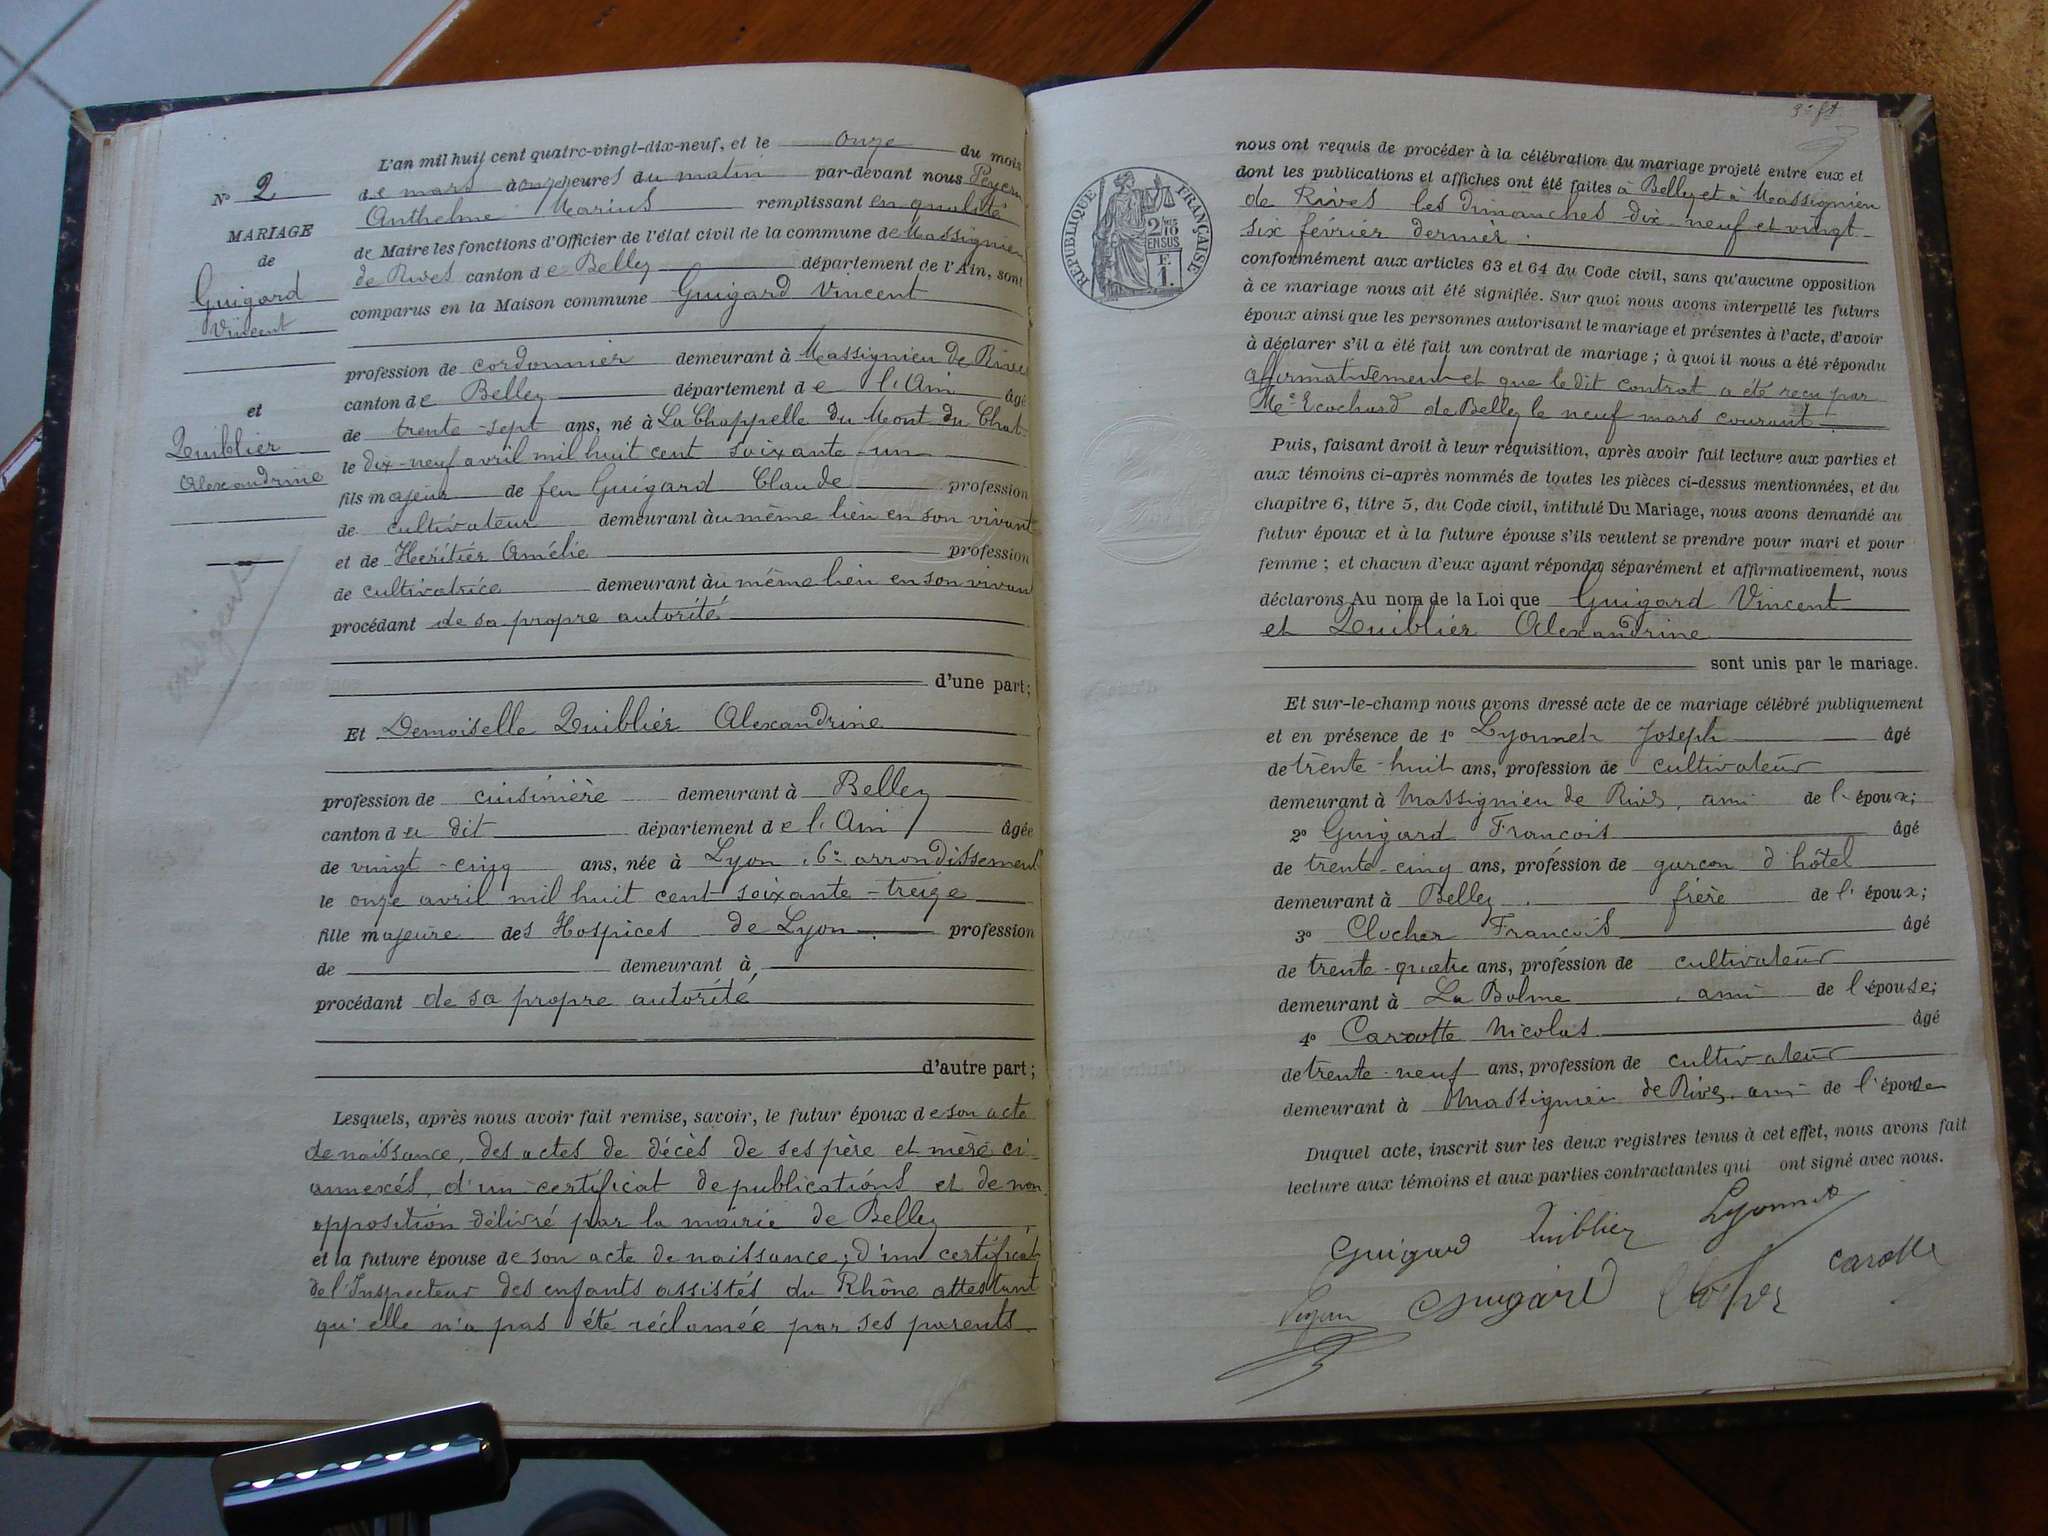 L'an mil huit cent quatre-vingt-dix-neuf, et le onze du mois
de mars à onze heures du matin par-devant nous Peyen
Anthelme Marius remplissant en qualité
de Maire les fonctions d'Officier de l'état civil de la commune de Massignieu
de Rives canton de Belley département de l'Ain, sont
comparus en la Maison commune Guigard Vincent
profession de cordonnier demeurant à Massignieu de Rives
canton de Belley département de l'Ain âgé
de trente-sept ans, né à La Chappelle du Mont du Chat
le dix-neuf avril mil huit cent soixante-un
fils majeur de feu Guigard Claude profession
de cultivateur demeurant au même lieu en son vivant
et de Héritier Amélie profession
de cultivatrice demeurant au même lieu en son vivant
procédant de sa propre autorité
d'une part;
Et Demoiselle Quiblier Alexandrine
profession de cuisinière demeurant à Belley
canton du dit département de l'Ain âgée
de vingt-cinq ans, née à Lyon, 6e arrondissement
le onze avril mil huit cent soixante-treize
fille majeure des Hospices de Lyon. profession
de demeurant à
procédant de sa propre autorité
d'autre part;
Lesquels, après nous avoir fait remise, savoir, le futur époux de son acte
de naissance, des actes de décès de ses père et mère ci-
annexés, d'un certificat de publications et de non
opposition délivré par la mairie de Belley
et la future épouse de son acte de naissance; d'un certificat
de l'Inspecteur des enfants assistés du Rhône attestant
qu'elle n'a pas été réclamée par ses parents.
N° 2
MARIAGE
de
Guigard
Vincent
et
Quiblier
Alexandrine
RÉPUBLIQUE FRANÇAISE
2/10
EN SUS
F.
1.
nous ont requis de procéder à la célébration du mariage projeté entre eux et
dont les publications et affiches ont été faites à Belley et à Massignieu
de Rives les dimanches dix-neuf et vingt-
six février dernier.
conformément aux articles 63 et 64 du Code civil, sans qu'aucune opposition
à ce mariage nous ait été signifiée. Sur quoi nous avons interpellé les futurs
époux ainsi que les personnes autorisant le mariage et présentes à l'acte, d'avoir
à déclarer s'il a été fait un contrat de mariage; à quoi il nous a été répondu
affirmativement et que le dit contrat a été reçu par
Me Ecochard de Belley le neuf mars courant.
Puis, faisant droit à leur réquisition, après avoir fait lecture aux parties et
aux témoins ci-après nommés de toutes les pièces ci-dessus mentionnées, et du
chapitre 6, titre 5, du Code civil, intitulé Du Mariage, nous avons demandé au
futur époux et à la future épouse s'ils veulent se prendre pour mari et pour
femme; et chacun d'eux ayant répondu séparément et affirmativement, nous
déclarons Au nom de la Loi que Guigard Vincent
et Quiblier Alexandrine
sont unis par le mariage.
Et sur-le-champ nous avons dressé acte de ce mariage célébré publiquement
et en présence de 1° Lyonnet Joseph âgé
de trente-huit ans, profession de cultivateur
demeurant à Massignieu de Rives, ami de l'époux;
2° Guigard François âgé
de trente-cinq ans, profession de garçon d'hôtel
demeurant à Belley frère de l'époux;
3° Clocher François âgé
de trente-quatre ans, profession de cultivateur
demeurant à La Balme, ami de l'épouse;
4° Carotte Nicolas âgé
de trente-neuf ans, profession de cultivateur
demeurant à Massignieu de Rives, ami de l'épouse
Duquel acte, inscrit sur les deux registres tenus à cet effet, nous avons fait
lecture aux témoins et aux parties contractantes qui ont signé avec nous.
Guigard Quiblier Lyonnet
Peyen Guigard Carotte